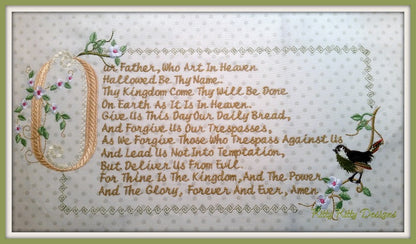 Our Father, Who Art In Heaven
Hallowed Be Thy Name.
Thy Kingdom Come Thy Will Be Done
On Earth As It Is In Heaven.
Give Us This Day Our Daily Bread,
And Forgive Us Our Trespasses,
As We Forgive Those Who Trespass Against Us
And Lead Us Not Into Temptation,
But Deliver Us From Evil
For Thine Is The Kingdom, And The Power
And The Glory, Forever And Ever, Amen
Kitty Designs